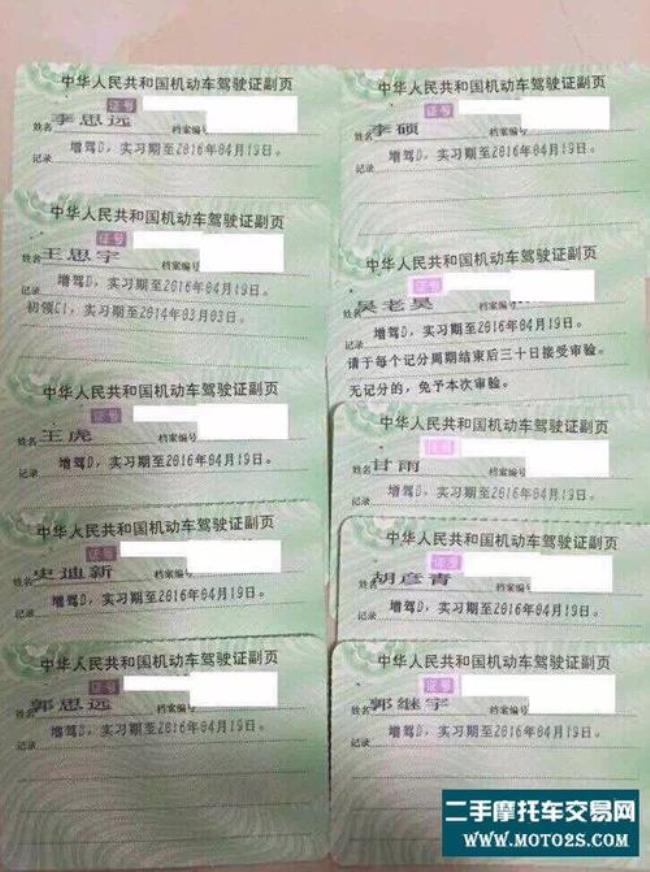 中华人民共和国机动车驾驶证副页
证号
姓名 李思远 档案编号
记录 增驾D，实习期至2016年04月19日。
中华人民共和国机动车驾驶证副页
证号
姓名 王思宇 档案编号
记录 增驾D，实习期至2016年04月19日。
初领C1，实习期至2014年03月03日。
中华人民共和国机动车驾驶证副页
证号
姓名 王虎 档案编号
记录 增驾D，实习期至2016年04月19日。
中华人民共和国机动车驾驶证副页
证号
姓名 史迪新 档案编号
记录 增驾D，实习期至2016年04月19日。
中华人民共和国机动车驾驶证副页
证号
姓名 郭思远 档案编号
记录 增驾D，实习期至2016年04月19日。
中华人民共和国机动车驾驶证副页
证号
姓名 李硕 档案编号
记录 增驾D，实习期至2016年04月19日。
中华人民共和国机动车驾驶证副页
证号
姓名 吴老昊 档案编号
记录 增驾D，实习期至2016年04月19日。
请于每个记分周期结束后三十日接受审验。
无记分的，免予本次审验。
中华人民共和国机动车驾驶证副页
证号
姓名 甘雨 档案编号
记录 增驾D，实习期至2016年04月19日。
中华人民共和国机动车驾驶证副页
证号
姓名 胡彦青 档案编号
记录 增驾D，实习期至2016年04月19日。
中华人民共和国机动车驾驶证副页
证号
姓名 郭继宇 档案编号
记录 增驾D，实习期至2016年04月19日。
二手摩托车交易网
WWW.MOTO2S.COM